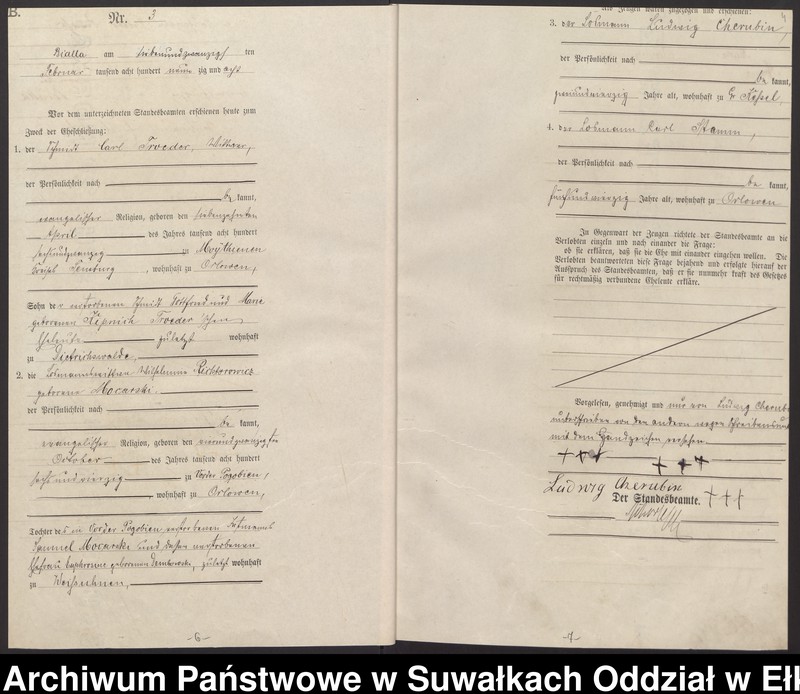 B.
Nr. 3
Bialla am siebenundzwanzigs ten
Februar tausend acht hundert neun zig und acht
Vor dem unterzeichneten Standesbeamten erschienen heute zum
Zweck der Eheschließung:
1. der Schmidt Carl Troeder, Wittwer,
der Persönlichkeit nach
be kannt,
evangelischer Religion, geboren den siebenzehnten
April des Jahres tausend acht hundert
zu
, wohnhaft zu Orlowen,
Sohn der verstorbenen Schmidt Gottfried und Marie
geborenen Troeder'schen
Eheleute zuletzt wohnhaft
zu Dietrichswalde,
2. die Losmannswittwe Wilhelmine
geborene Mocarski.
der Persönlichkeit nach
be kannt,
evangelischer Religion, geboren den
October des Jahres tausend acht hundert
sechsundvierzig zu Border Pogobien,
, wohnhaft zu Orlowen,
Tochter des in Border Pogobien verstorbenen Losmanns
Samuel Mocarski und dessen verstorbenen
Ehefrau geborenen , zuletzt wohnhaft
zu
-6-
als Zeugen waren zugezogen und erschienen:
3. der Losmann Ludwig Cherubin,
der Persönlichkeit nach
be kannt,
Jahre alt, wohnhaft zu Gr Kessel,
4. der Losmann Carl Stamm,
der Persönlichkeit nach
be kannt,
fünfundvierzig Jahre alt, wohnhaft zu Orlowen
In Gegenwart der Zeugen richtete der Standesbeamte an die
Verlobten einzeln und nach einander die Frage:
ob sie erklären, daß sie die Ehe mit einander eingehen wollen. Die
Verlobten beantworteten diese Frage bejahend und erfolgte hierauf der
Ausspruch des Standesbeamten, daß er sie nunmehr kraft des Gesetzes
für rechtmäßig verbundene Eheleute erkläre.
Vorgelesen, genehmigt und nur von Ludwig Cherubin
unterschrieben von den andern wegen Schreibensun
mit dem Handzeichen versehen.
+++ +++
Ludwig Cherubin
Der Standesbeamte. +++
-7-
Archiwum Państwowe w Suwałkach Oddział w Eł